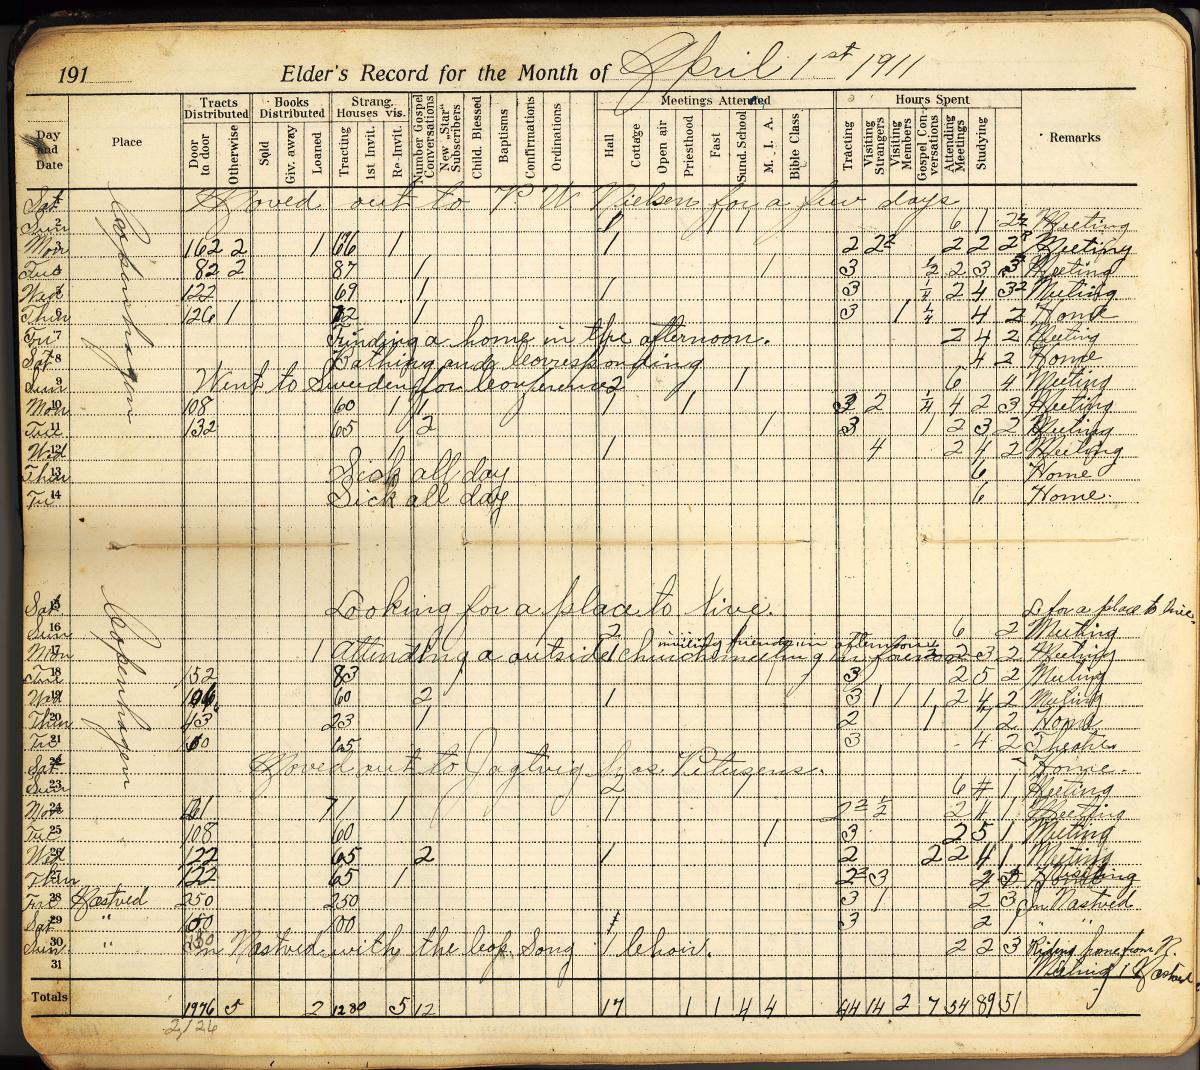 191 Elder's Record for the Month of April 1st 1911
Tracts Distributed Books Distributed Strang. Houses vis. Meetings Attended Hours Spent
Day and Date Place Door to door Otherwise Sold Giv. away Loaned Tracting 1st Invit. Re-Invit. Number Gospel Conversations New "Star" Subscribers Child. Blessed Baptisms Confirmations Ordinations Hall Cottage Open air Priesthood Fast Sund. School M. I. A. Bible Class Tracting Visiting Strangers Visiting Members Gospel Conversations Attending Meetings Studying Remarks
Copenhagen
Sat 1 Moved out to P W Nielsen for a few days
Sun 2 1 1 1 6 1 Meeting
Mon 3 162 2 1 1 1 2 2 2 2 2 Meeting
Tue 4 82 2 87 1 1 3 1/2 2 3 Meeting
Wed 5 122 69 1 1 3 1/4 2 4 3 Meeting
Thur 6 126 1 72 1 3 1 1/4 4 2 Home
Fri 7 Finding a home in the afternoon. 2 4 2 Meeting
Sat 8 Bathing and corresponding 4 2 Home
Sun 9 Went to Sweden for Conference 2 1 6 4 Meeting
Mon 10 108 60 1 1 1 1 3 2 1/4 4 2 3 Meeting
Tue 11 132 65 2 1 3 1 2 3 2 Meeting
Wed 12 1 1 4 2 4 2 Meeting
Thur 13 Sick all day 6 Home
Fri 14 Sick all day 6 Home.
Copenhagen
Sat 15 Looking for a place to live. L. for a place to live.
Sun 16 2 6 2 Meeting
visiting friends in afternoon
Mon 17 1 Attending a outside church meeting in forenoon 2 3 2 Meeting
Tue 18 152 83 3 2 5 2 Meeting
Wed 19 106 60 2 1 3 1 1 1 2 4 2 Meeting
Thur 20 43 23 1 2 1 7 2 Home
Fri 21 65 3 4 2 Theatre
Sat 22 Moved out to Jagtvig hos Petersens. Home.
Sun 23 2 6 4 1 Meeting
Mon 24 1 1 2 1/2 2 4 1 Meeting
Tue 25 108 60 1 3 2 5 1 Meeting
Wed 26 122 65 2 1 2 2 2 4 1 Meeting
Thur 27 122 65 1 2 3 2 Meeting
Fri 28 Nastved 250 250 3 1 2 3 In Nastved
Sat 29 " 100 3 2 1 " "
Sun 30 " In Nastved with the Cop. Song 1 Choir. 2 2 3 Riding home from N.
31 Meeting i Nastved
Totals 1976 5 2 1280 5 12 17 1 1 4 4 44 14 2 7 54 89 51
2,126